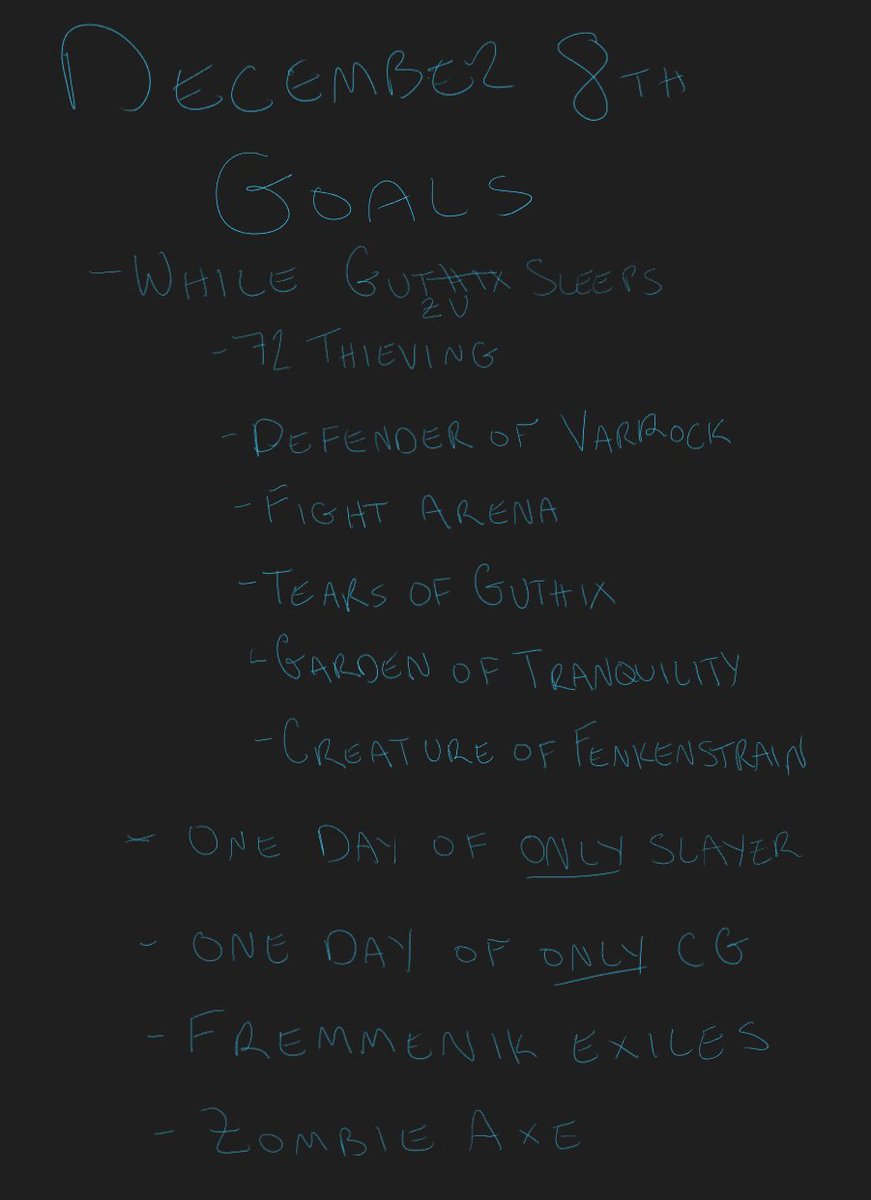 December 8th
Goals
- While Guthix Sleeps
zu
- 72 Thieving
- Defender of Varrock
- Fight Arena
- Tears of Guthix
- Garden of Tranquility
- Creature of Fenkenstrain
- One Day of only slayer
- One Day of only CG
- Fremmenik exiles
- Zombie Axe